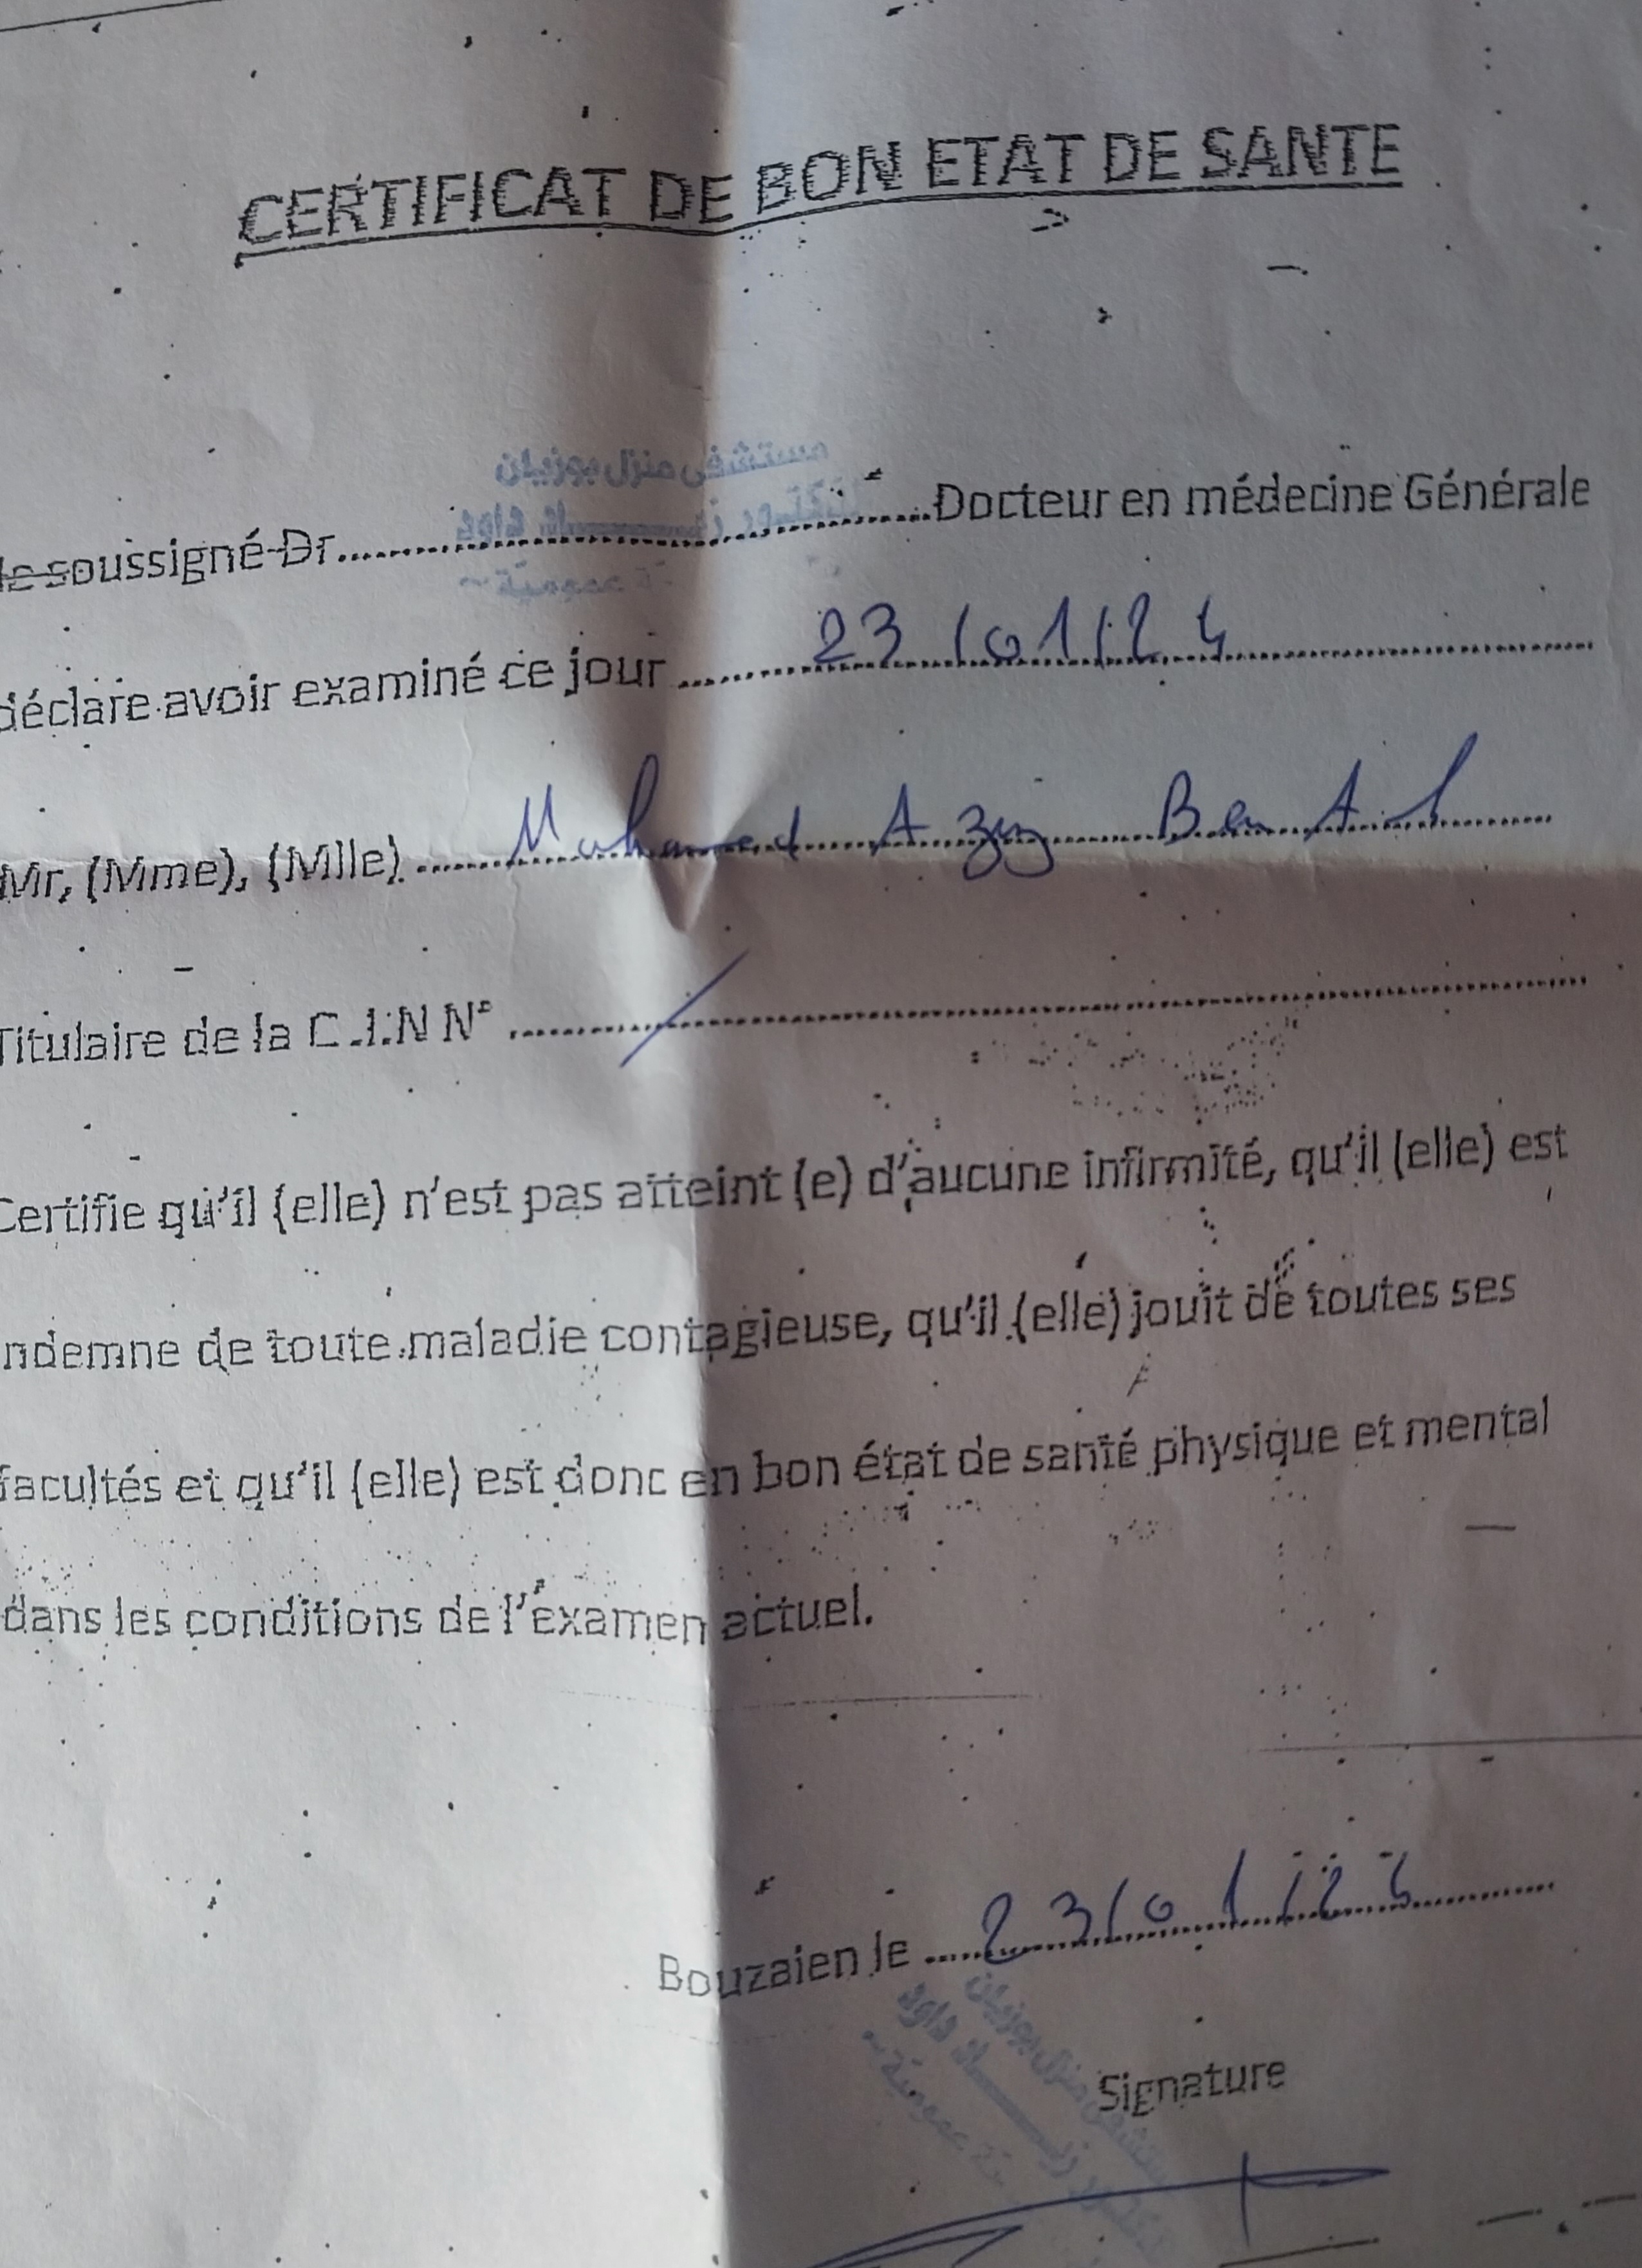 CERTIFICAT DE BON ETAT DE SANTE
مستشفى منزل بوزيان
Je soussigné Dr..........Docteur en médecine Générale
عمومية
déclare avoir examiné ce jour 23/01/24
Mr, (Mme), (Mlle) Mohamed Aziz Ben
Titulaire de la C.I.N N° /
Certifie qu'il (elle) n'est pas atteint (e) d'aucune infirmité, qu'il (elle) est
indemne de toute maladie contagieuse, qu'il (elle) jouit de toutes ses
facultés et qu'il (elle) est donc en bon état de santé physique et mental
dans les conditions de l'examen actuel.
Bouzaien le 23/01/24
منزل بوزيان
Signature